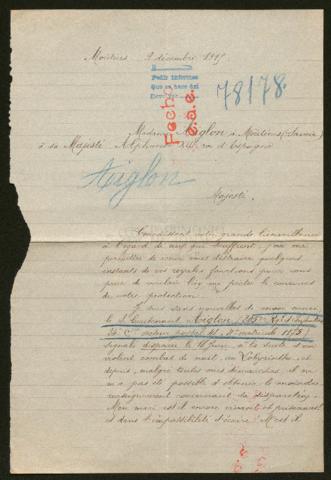 Moûtiers 9 décembre 1915
Pedir informes
78178.
Fech
e.a.c.
Madame Aiglon à Moûtiers (Savoie)
à sa Majesté Alphonse XIII roi d'Espagne
Aiglon
Majesté,
Connaissant votre grande bienveillance
à l'égard de ceux qui souffrent, j'ose me
permettre de venir vous distraire quelques
instants de vos royales fonctions pour vous
prier de vouloir bien me prêter le concours
de votre protection.
Je suis sans nouvelles de mon mari,
le S. Lieutenant Aiglon
signalé disparu le 16 Juin, à la suite d'un
violent combat de nuit, au Labyrinthe, et
depuis, malgré toutes mes démarches, il ne
m'a pas été possible d'obtenir le moindre
renseignement concernant sa disparition.
Mon mari est-il encore vivant et prisonnier
et dans l'impossibilité d'écrire? M'est-il